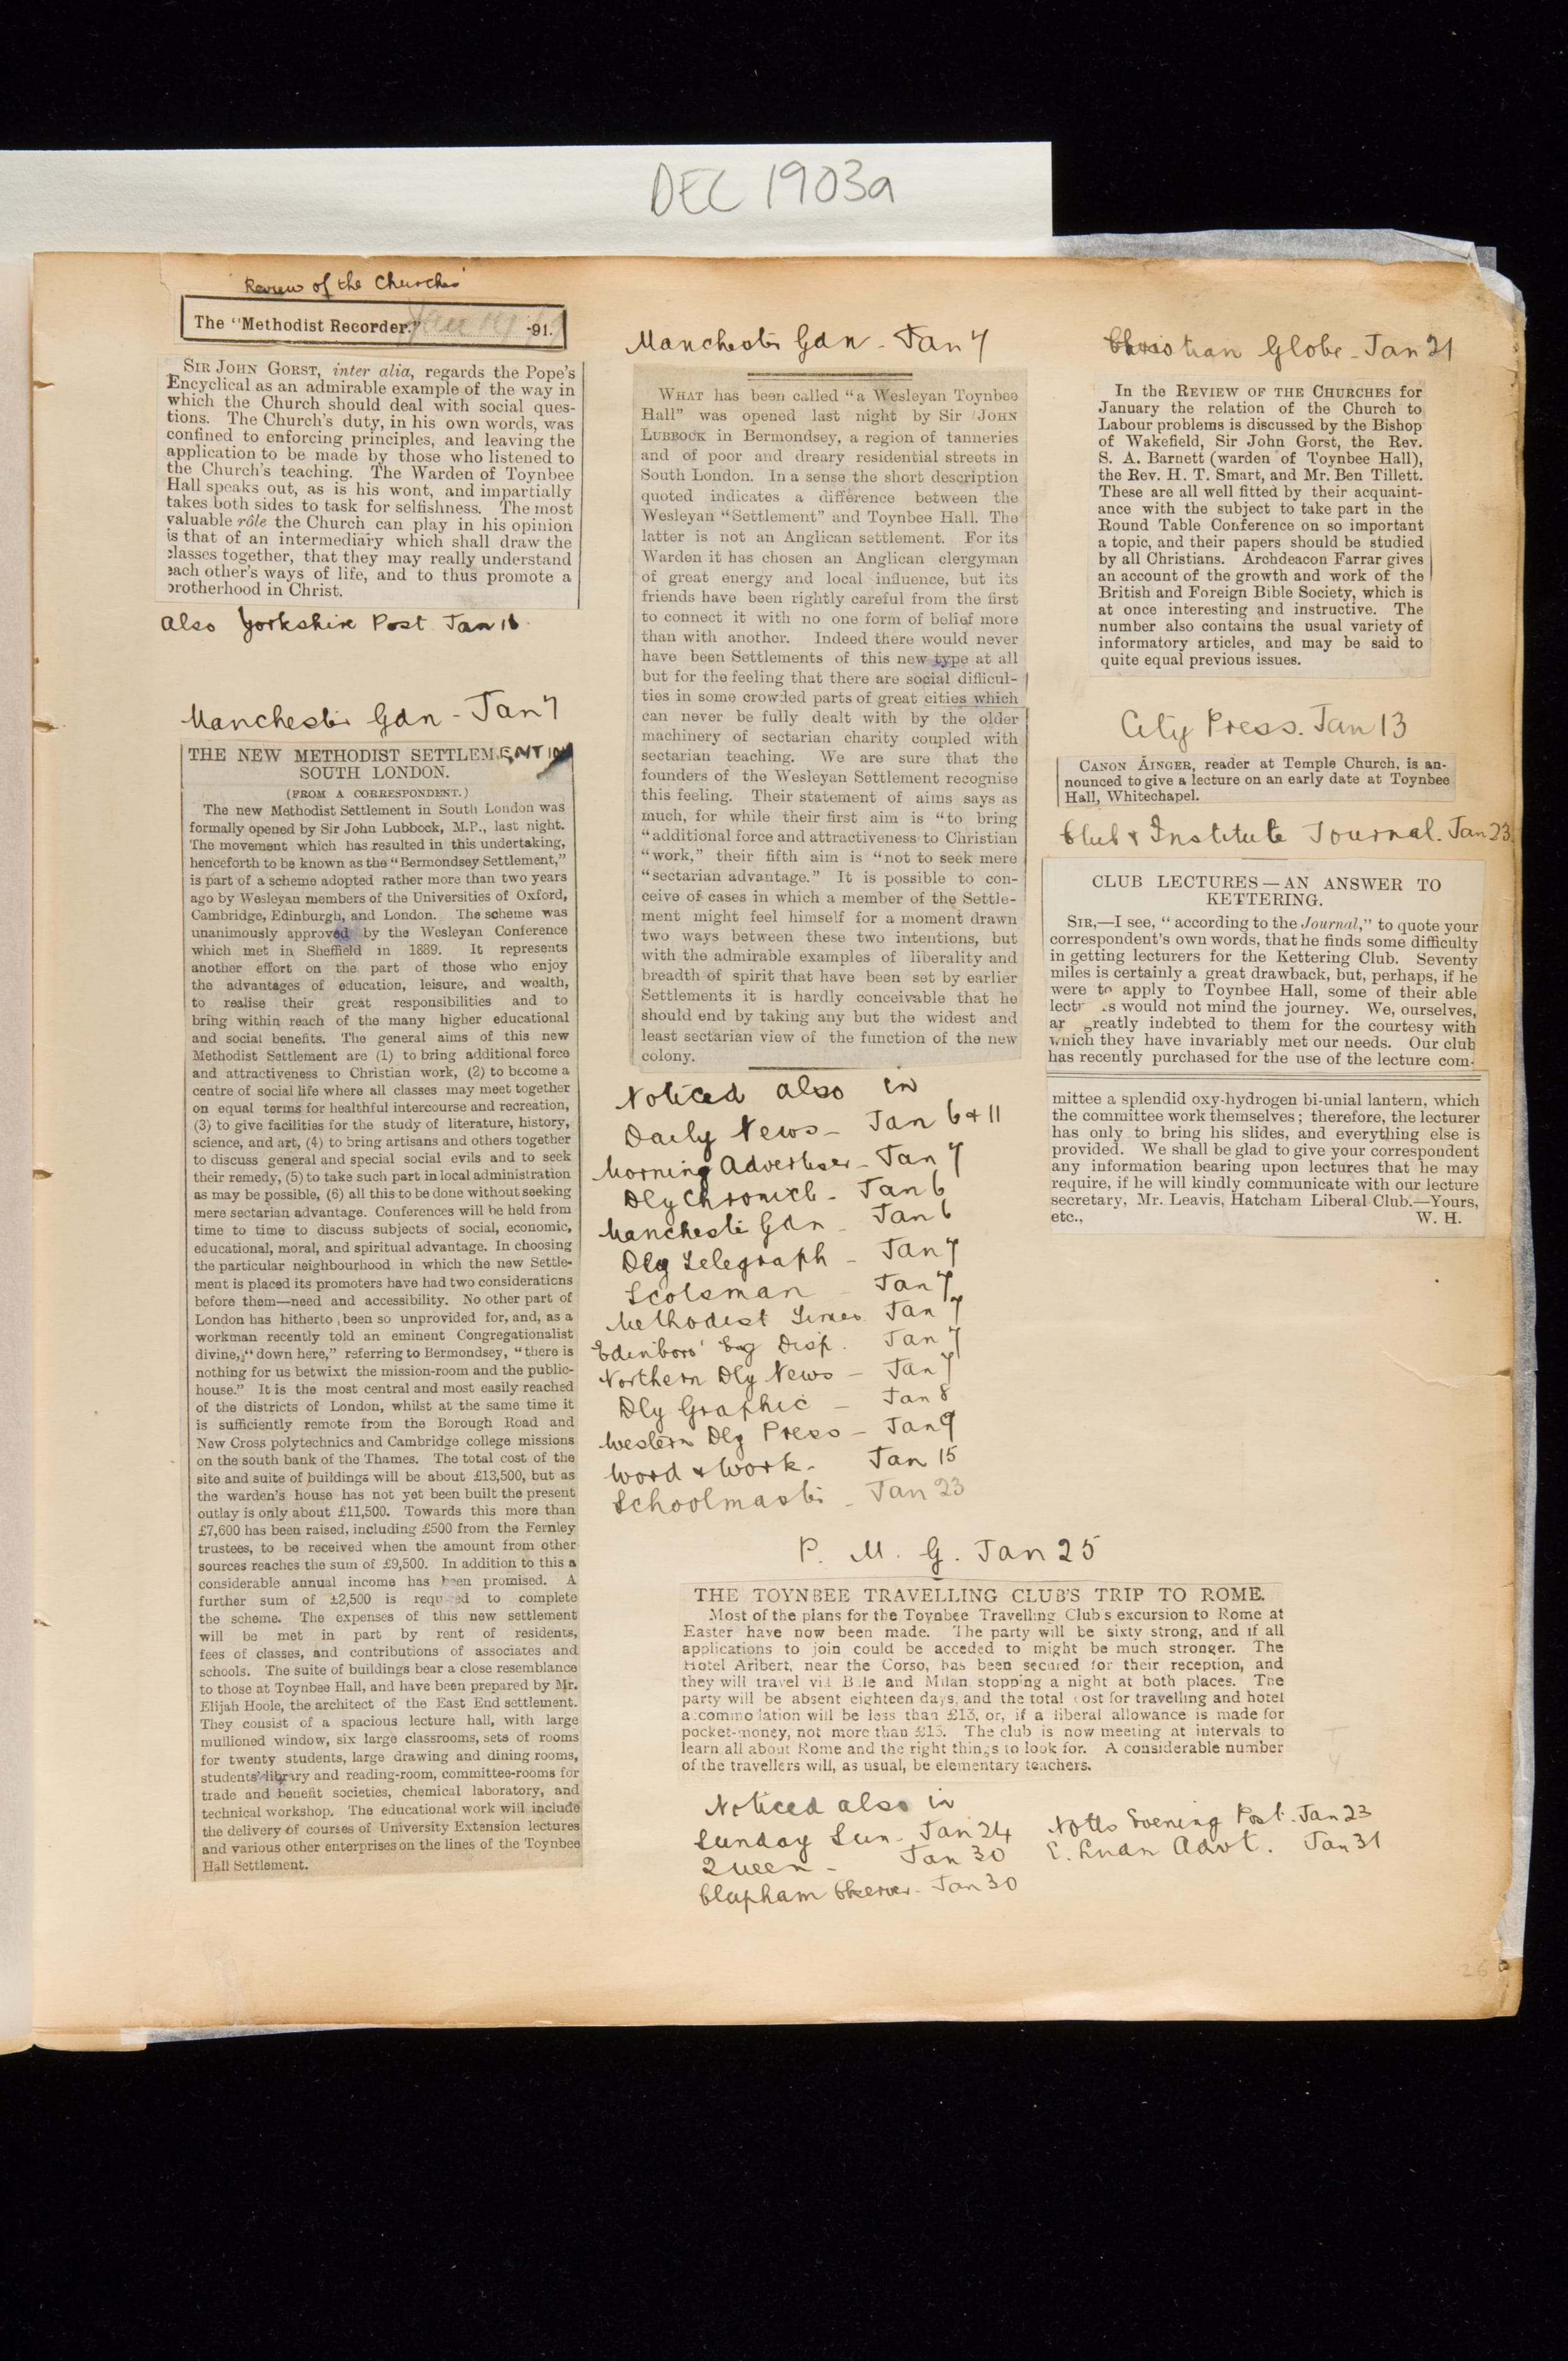 DEC 1903a
Review of the Churches
The "Methodist Recorder." -91.
SIR JOHN GORST, inter alia, regards the Pope's
Encyclical as an admirable example of the way in
which the Church should deal with social ques-
tions. The Church's duty, in his own words, was
confined to enforcing principles, and leaving the
application to be made by those who listened to
the Church's teaching. The Warden of Toynbee
Hall speaks out, as is his wont, and impartially
takes both sides to task for selfishness. The most
valuable rôle the Church can play in his opinion
is that of an intermediary which shall draw the
classes together, that they may really understand
each other's ways of life, and to thus promote a
brotherhood in Christ.
also Yorkshire Post Jan 18
Manchester Gdn - Jan 7
THE NEW METHODIST SETTLEMENT IN
SOUTH LONDON.
(FROM A CORRESPONDENT.)
The new Methodist Settlement in South London was
formally opened by Sir John Lubbock, M.P., last night.
The movement which has resulted in this undertaking,
henceforth to be known as the "Bermondsey Settlement,"
is part of a scheme adopted rather more than two years
ago by Wesleyan members of the Universities of Oxford,
Cambridge, Edinburgh, and London. The scheme was
unanimously approved by the Wesleyan Conference
which met in Sheffield in 1889. It represents
another effort on the part of those who enjoy
the advantages of education, leisure, and wealth,
to realise their great responsibilities and to
bring within reach of the many higher educational
and social benefits. The general aims of this new
Methodist Settlement are (1) to bring additional force
and attractiveness to Christian work, (2) to become a
centre of social life where all classes may meet together
on equal terms for healthful intercourse and recreation,
(3) to give facilities for the study of literature, history,
science, and art, (4) to bring artisans and others together
to discuss general and special social evils and to seek
their remedy, (5) to take such part in local administration
as may be possible, (6) all this to be done without seeking
mere sectarian advantage. Conferences will be held from
time to time to discuss subjects of social, economic,
educational, moral, and spiritual advantage. In choosing
the particular neighbourhood in which the new Settle-
ment is placed its promoters have had two considerations
before them—need and accessibility. No other part of
London has hitherto been so unprovided for, and, as a
workman recently told an eminent Congregationalist
divine, "down here," referring to Bermondsey, "there is
nothing for us betwixt the mission-room and the public-
house." It is the most central and most easily reached
of the districts of London, whilst at the same time it
is sufficiently remote from the Borough Road and
New Cross polytechnics and Cambridge college missions
on the south bank of the Thames. The total cost of the
site and suite of buildings will be about £13,500, but as
the warden's house has not yet been built the present
outlay is only about £11,500. Towards this more than
£7,600 has been raised, including £500 from the Fernley
trustees, to be received when the amount from other
sources reaches the sum of £9,500. In addition to this a
considerable annual income has been promised. A
further sum of £2,500 is required to complete
the scheme. The expenses of this new settlement
will be met in part by rent of residents,
fees of classes, and contributions of associates and
schools. The suite of buildings bear a close resemblance
to those at Toynbee Hall, and have been prepared by Mr.
Elijah Hoole, the architect of the East End settlement.
They consist of a spacious lecture hall, with large
mullioned window, six large classrooms, sets of rooms
for twenty students, large drawing and dining rooms,
students' library and reading-room, committee-rooms for
trade and benefit societies, chemical laboratory, and
technical workshop. The educational work will include
the delivery of courses of University Extension lectures
and various other enterprises on the lines of the Toynbee
Hall Settlement.
Manchester Gdn - Jan 7
WHAT has been called "a Wesleyan Toynbee
Hall" was opened last night by Sir JOHN
LUBBOCK in Bermondsey, a region of tanneries
and of poor and dreary residential streets in
South London. In a sense the short description
quoted indicates a difference between the
Wesleyan "Settlement" and Toynbee Hall. The
latter is not an Anglican settlement. For its
Warden it has chosen an Anglican clergyman
of great energy and local influence, but its
friends have been rightly careful from the first
to connect it with no one form of belief more
than with another. Indeed there would never
have been Settlements of this new type at all
but for the feeling that there are social difficul-
ties in some crowded parts of great cities which
can never be fully dealt with by the older
machinery of sectarian charity coupled with
sectarian teaching. We are sure that the
founders of the Wesleyan Settlement recognise
this feeling. Their statement of aims says as
much, for while their first aim is "to bring
"additional force and attractiveness to Christian
"work," their fifth aim is "not to seek mere
"sectarian advantage." It is possible to con-
ceive of cases in which a member of the Settle-
ment might feel himself for a moment drawn
two ways between these two intentions, but
with the admirable examples of liberality and
breadth of spirit that have been set by earlier
Settlements it is hardly conceivable that he
should end by taking any but the widest and
least sectarian view of the function of the new
colony.
Noticed also in
Daily News - Jan 6 & 11
Morning Advertiser - Jan 7
Dly Chronicle - Jan 6
Manchester Gdn - Jan 6
Dly Telegraph - Jan 7
Scotsman - Jan 7
Methodist Times Jan 7
Edinboro' Evg Disp. Jan 7
Northern Dly News - Jan 7
Dly Graphic - Jan 8
Western Dly Press - Jan 9
Word & Work - Jan 15
Schoolmaster - Jan 23
P. M. G. Jan 25
THE TOYNBEE TRAVELLING CLUB'S TRIP TO ROME.
Most of the plans for the Toynbee Travelling Club's excursion to Rome at
Easter have now been made. The party will be sixty strong, and if all
applications to join could be acceded to might be much stronger. The
Hotel Aribert, near the Corso, has been secured for their reception, and
they will travel viâ Bâle and Milan, stopping a night at both places. The
party will be absent eighteen days, and the total cost for travelling and hotel
accommodation will be less than £13, or, if a liberal allowance is made for
pocket-money, not more than £15. The club is now meeting at intervals to
learn all about Rome and the right things to look for. A considerable number
of the travellers will, as usual, be elementary teachers.
Noticed also in
Sunday Sun - Jan 24
Queen - Jan 30
Clapham Observer - Jan 30
Notts Evening Post - Jan 23
E. Lndn Advt. Jan 31
Christian Globe - Jan 21
In the REVIEW OF THE CHURCHES for
January the relation of the Church to
Labour problems is discussed by the Bishop
of Wakefield, Sir John Gorst, the Rev.
S. A. Barnett (warden of Toynbee Hall),
the Rev. H. T. Smart, and Mr. Ben Tillett.
These are all well fitted by their acquaint-
ance with the subject to take part in the
Round Table Conference on so important
a topic, and their papers should be studied
by all Christians. Archdeacon Farrar gives
an account of the growth and work of the
British and Foreign Bible Society, which is
at once interesting and instructive. The
number also contains the usual variety of
informatory articles, and may be said to
quite equal previous issues.
City Press. Jan 13
CANON AINGER, reader at Temple Church, is an-
nounced to give a lecture on an early date at Toynbee
Hall, Whitechapel.
Club & Institute Journal. Jan 23
CLUB LECTURES — AN ANSWER TO
KETTERING.
SIR,—I see, "according to the Journal," to quote your
correspondent's own words, that he finds some difficulty
in getting lecturers for the Kettering Club. Seventy
miles is certainly a great drawback, but, perhaps, if he
were to apply to Toynbee Hall, some of their able
lect s would not mind the journey. We, ourselves,
ar greatly indebted to them for the courtesy with
which they have invariably met our needs. Our club
has recently purchased for the use of the lecture com-
mittee a splendid oxy-hydrogen bi-unial lantern, which
the committee work themselves; therefore, the lecturer
has only to bring his slides, and everything else is
provided. We shall be glad to give your correspondent
any information bearing upon lectures that he may
require, if he will kindly communicate with our lecture
secretary, Mr. Leavis, Hatcham Liberal Club.—Yours,
etc., W. H.
26